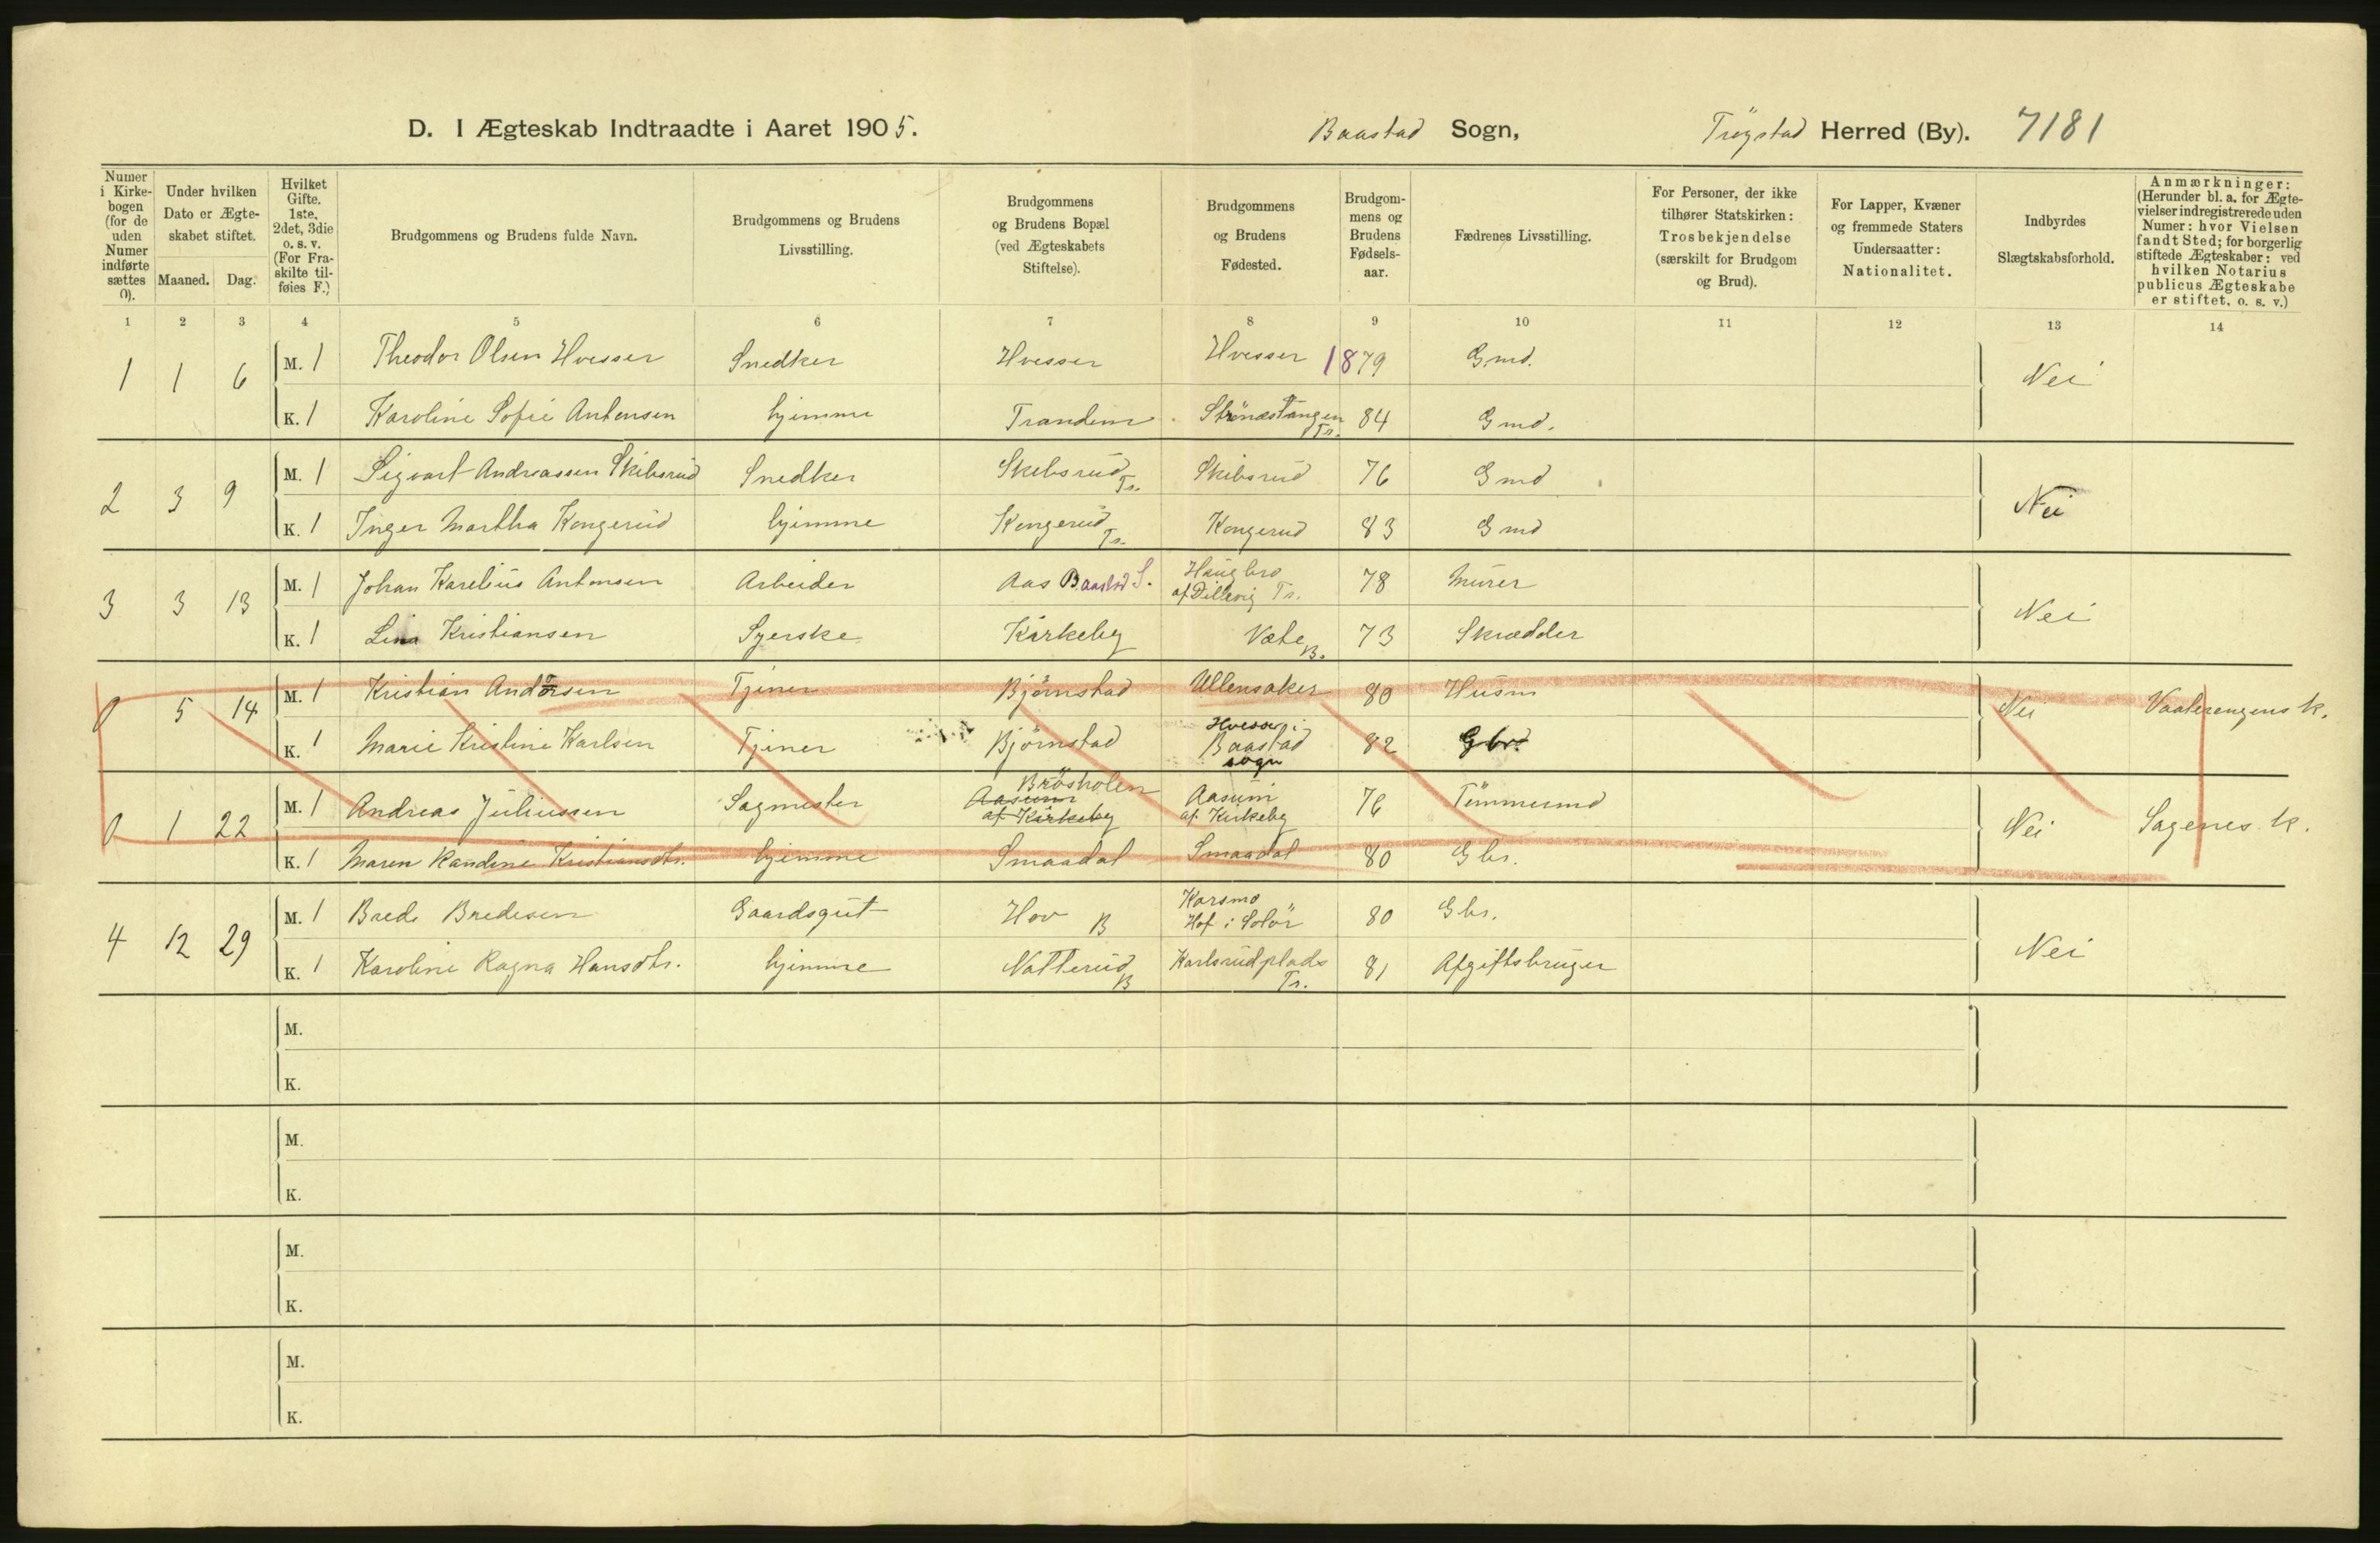 D. I Ægteskab Indtraadte i Aaret 1905. Baastad Sogn, Trøgstad Herred (By). 7181
Numer i Kirkebogen (for de uden Numer indførte sættes 0).
Under hvilken Dato er Ægteskabet stiftet.
Maaned. Dag.
Hvilket Gifte. 1ste, 2det, 3die o. s. v. (For Fraskilte tilføies F.)
Brudgommens og Brudens fulde Navn.
Brudgommens og Brudens Livsstilling.
Brudgommens og Brudens Bopæl (ved Ægteskabets Stiftelse).
Brudgommens og Brudens Fødested.
Brudgommens og Brudens Fødselsaar.
Fædrenes Livsstilling.
For Personer, der ikke tilhører Statskirken: Trosbekjendelse (særskilt for Brudgom og Brud).
For Lapper, Kvæner og fremmede Staters Undersaatter: Nationalitet.
Indbyrdes Slægtskabsforhold.
Anmærkninger: (Herunder bl. a. for Ægtevielser indregistrerede uden Numer: hvor Vielsen fandt Sted; for borgerlig stiftede Ægteskaber: ved hvilken Notarius publicus Ægteskabe er stiftet, o. s. v.)
1 2 3 4 5 6 7 8 9 10 11 12 13 14
1 1 6 M. 1 Theodor Olsen Hvesser Snedker Hvesser Hvesser 1879 Gmd. Nei
K. 1 Karoline Sofie Antonsen hjemme Trandem Strönæstangen Tr. 84 Gmd.
2 3 9 M. 1 Sigvart Andreassen Skibsrud Snedker Skibsrud Tr. Skibsrud 76 Gmd Nei
K. 1 Inger Martha Kongerud hjemme Kongerud Tr. Kongerud 83 Gmd
3 3 13 M. 1 Johan Karelius Antonsen Arbeider Aas Baastad S. Haugbro af Dillevig Tr. 78 Murer Nei
K. 1 Lina Kristiansen Syerske Kirkeby Væte B. 73 Skrædder
0 5 14 M. 1 Kristian Andorsen Tjener Björnstad Ullensaker 80 Husm Nei Vaalerengens k.
K. 1 Marie Kristine Karlsen Tjener Björnstad Hvesser i Baastad sogn 82 Gbr.
0 1 22 M. 1 Andreas Juliussen Sagmester Brösholen Aasum af Kirkeby Aasum af Kirkeby 76 Tømmermd Nei Sagenes k.
K. 1 Maren Randine Kristiansdtr. hjemme Smaadal Smaadal 80 Gbr.
4 12 29 M. 1 Brede Bredesen Gaardsgut Hov B Karsmo Hof i Solör 80 Gbr. Nei
K. 1 Karoline Ragna Hansdtr. hjemme Natterud B Karlsrudplads Tr. 81 Afgiftsbruger
M.
K.
M.
K.
M.
K.
M.
K.